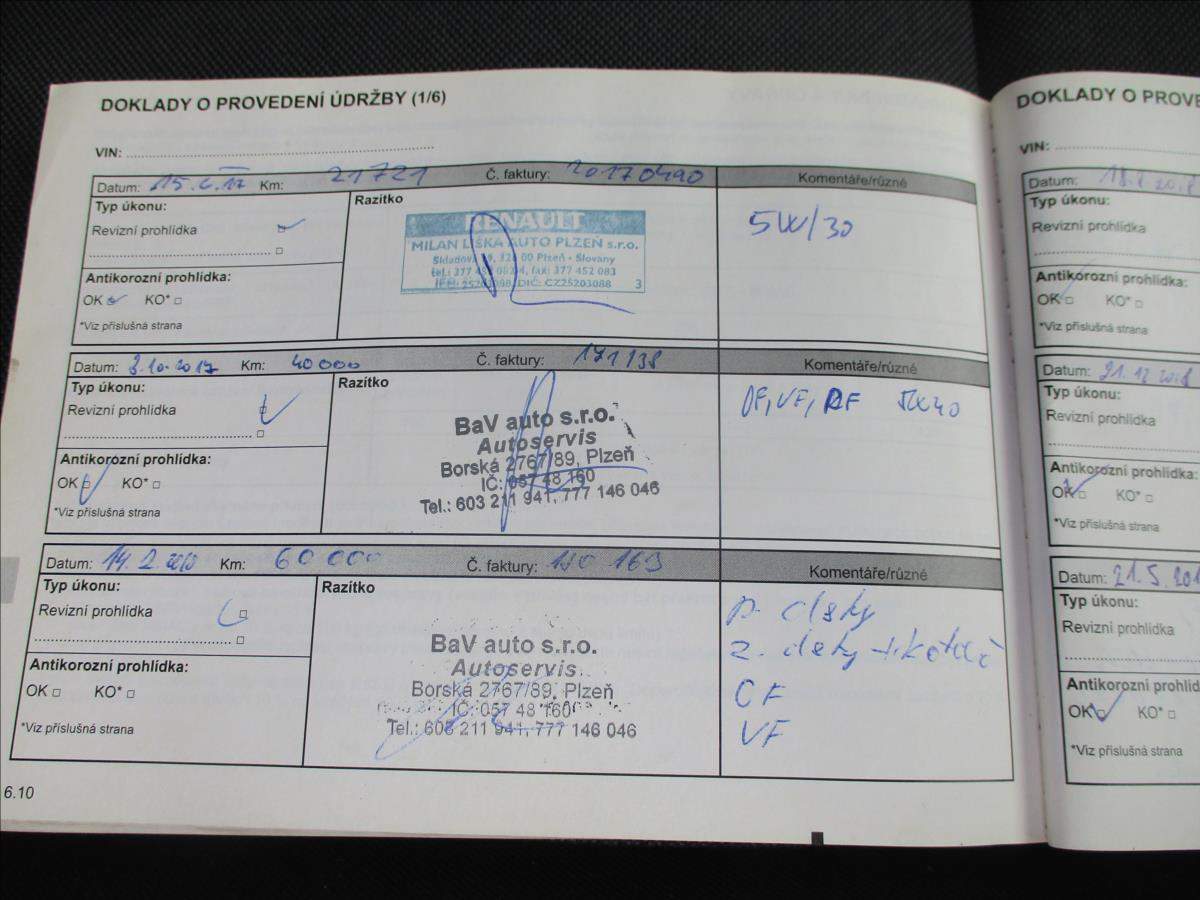 DOKLADY O PROVEDENÍ ÚDRŽBY (1/6)
VIN:
Datum: 15. 6. 17 Km: 21721 Č. faktury: 20170490 Komentáře/různé
Typ úkonu:
Revizní prohlídka
Antikorozní prohlídka:
OK KO*
*Viz příslušná strana
Razítko
RENAULT
MILAN LIŠKA AUTO PLZEŇ s.r.o.
Skladová 326 00 Plzeň - Slovany
tel.: 377 452 083 fax: 377 452 083
DIČ: CZ25203088 3
5W/30
Datum: 3. 10. 2017 Km: 40000 Č. faktury: 171138 Komentáře/různé
Typ úkonu:
Revizní prohlídka
Antikorozní prohlídka:
OK KO*
*Viz příslušná strana
Razítko
BaV auto s.r.o.
Autoservis
Borská 2767/89, Plzeň
IČ: 057 48 160
Tel.: 603 211 941, 777 146 046
OF, VF, PF 5W40
Datum: 14. 2. Km: 60 000 Č. faktury: 163 Komentáře/různé
Typ úkonu:
Revizní prohlídka
Antikorozní prohlídka:
OK KO*
*Viz příslušná strana
Razítko
BaV auto s.r.o.
Autoservis
Borská 2767/89, Plzeň
IČ: 057 48 160
Tel.: 603 211 941, 777 146 046
p. desky
z. desky + kotouč
CF
VF
6.10
DOKLADY O PROVE
VIN:
Datum: 18. 8. 2018
Typ úkonu:
Revizní prohlídka
Antikorozní prohlíd
OK KO*
*Viz příslušná strana
Datum: 21. 12. 2018
Typ úkonu:
Revizní prohlídka
Antikorozní prohlíd
OK KO*
*Viz příslušná strana
Datum: 21. 5. 201
Typ úkonu:
Revizní prohlídka
Antikorozní prohlíd
OK KO*
*Viz příslušná strana